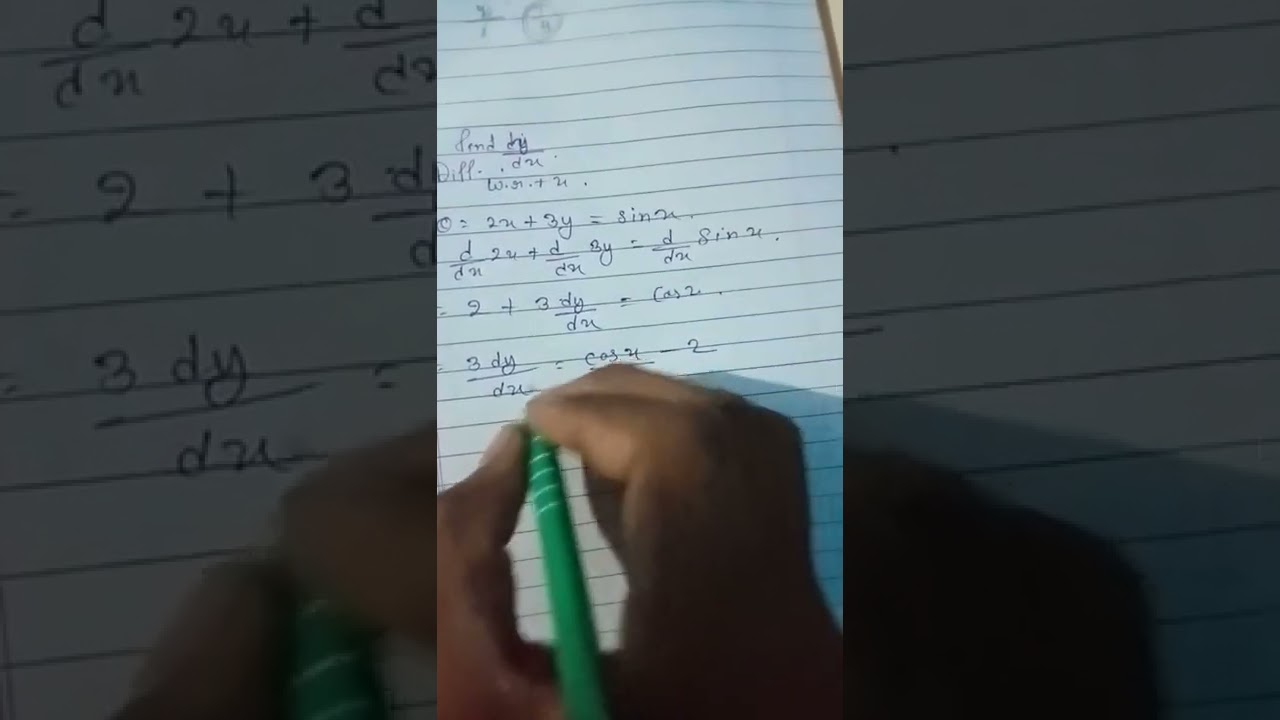 Find dy/dx.
Diff. w.r.t x.
①= 2x + 3y = sinx.
d/dx 2x + d/dx 3y = d/dx sinx.
= 2 + 3 dy/dx = cosx.
= 3 dy/dx = cosx - 2